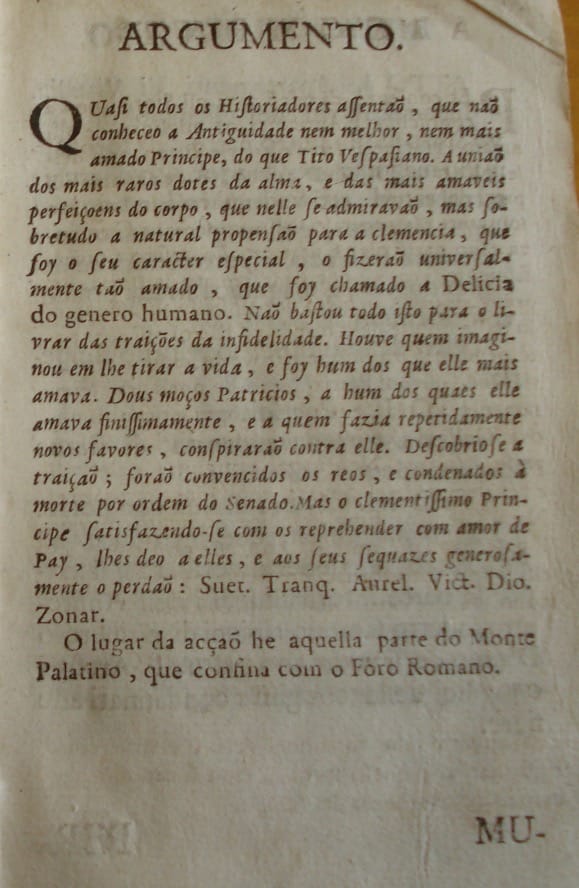 ARGUMENTO.
QUaſi todos os Hiſtoriadores aſſentaõ , que naõ
conheceo a Antiguidade nem melhor , nem mais
amado Principe, do que Tito Veſpaſiano. A uniaõ
dos mais raros dotes da alma, e das mais amaveis
perfeiçoens do corpo , que nelle ſe admiravaõ , mas ſo-
bretudo a natural propenſaõ para a clemencia, que
foy o ſeu caracter eſpecial , o fizeraõ univerſal-
mente taõ amado , que foy chamado a Delicia
do genero humano. Naõ baſtou todo iſto para o li-
vrar das traições da infidelidade. Houve quem imagi-
nou em lhe tirar a vida, e foy hum dos que elle mais
amava. Dous moços Patricios , a hum dos quaes elle
amava finiſſimamente , e a quem fazia repetidamente
novos favores, conſpiraraõ contra elle. Deſcobrioſe a
traiçaõ ; foraõ convencidos os reos , e condenados à
morte por ordem do Senado. Mas o clementiſſimo Prin-
cipe ſatisfazendo-ſe com os reprehender com amor de
Pay , lhes deo a elles , e aos ſeus ſequazes generoſa-
mente o perdaõ : Suet. Tranq. Aurel. Vict. Dio.
Zonar.
O lugar da acçaõ he aquella parte do Monte
Palatino , que confina com o Foro Romano.
MU-